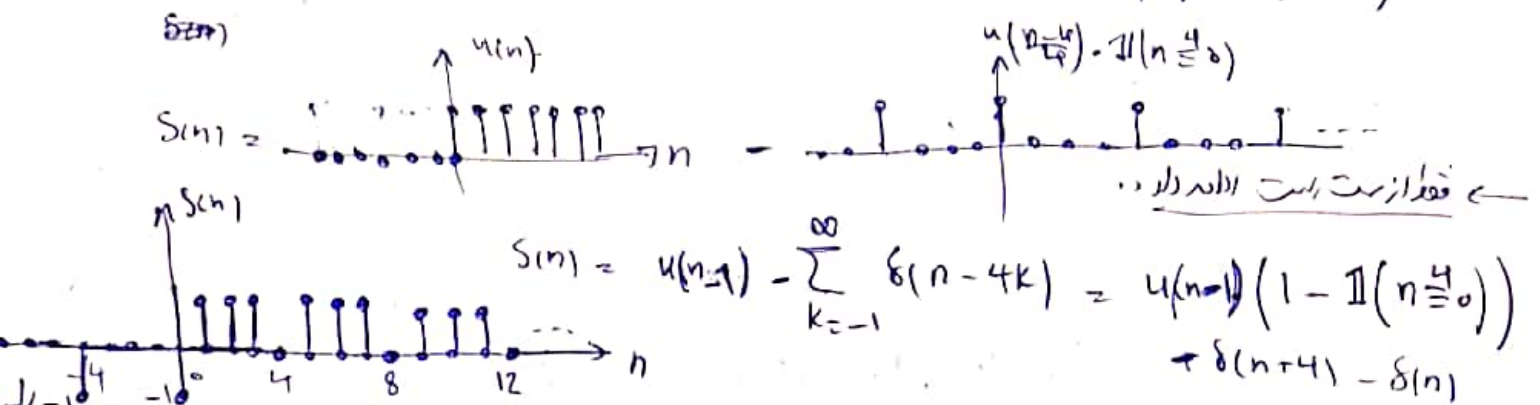 u(n)
S(n) =
n
-
u(n-4) . 𝟙(n ≡⁴ 0)
← فقط از سمت راست ادامه دارد ..
S(n)
S(n) = u(n-1) - ∑_{k=-1}^{∞} δ(n-4k) = u(n-1)(1 - 𝟙(n ≡⁴ 0))
+ δ(n+4) - δ(n)
-4 0 4 8 12 ... n
-1